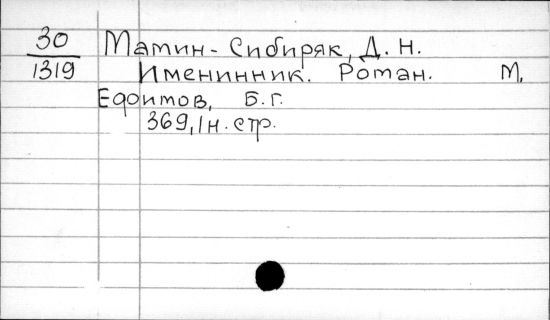 30
1319
Мамин-Сибиряк, Д. Н.
Именинник. Роман. М,
Ефимов, Б.г.
369, 1н. стр.